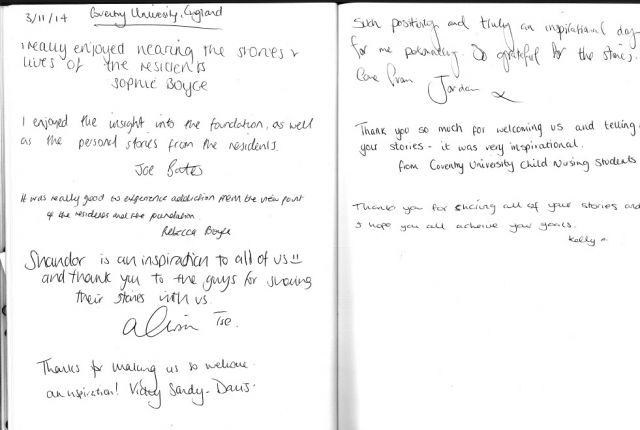 3/11/14 Coventry University, England
I really enjoyed hearing the stories &
lives of the residents
Sophie Boyce
I enjoyed the insight into the foundation, as well
as the personal stories from the residents.
Joe Bates
It was really good to experience addiction from the view point
of the residents and the foundation.
Rebecca Boyle
Shandor is an inspiration to all of us
and thank you to the guys for sharing
their stories with us.
Tse.
Thanks for making us so welcome.
an inspiration! Vickey Sandy-Davis.
Such positivity and truly an inspirational day
for me personally. So grateful for the stories.
Love from Jordan x
Thank you so much for welcoming us and telling
your stories - it was very inspirational.
from Coventry University Child Nursing Students
Thank you for sharing all of your stories and
I hope you all acheive your goals.
Kelly